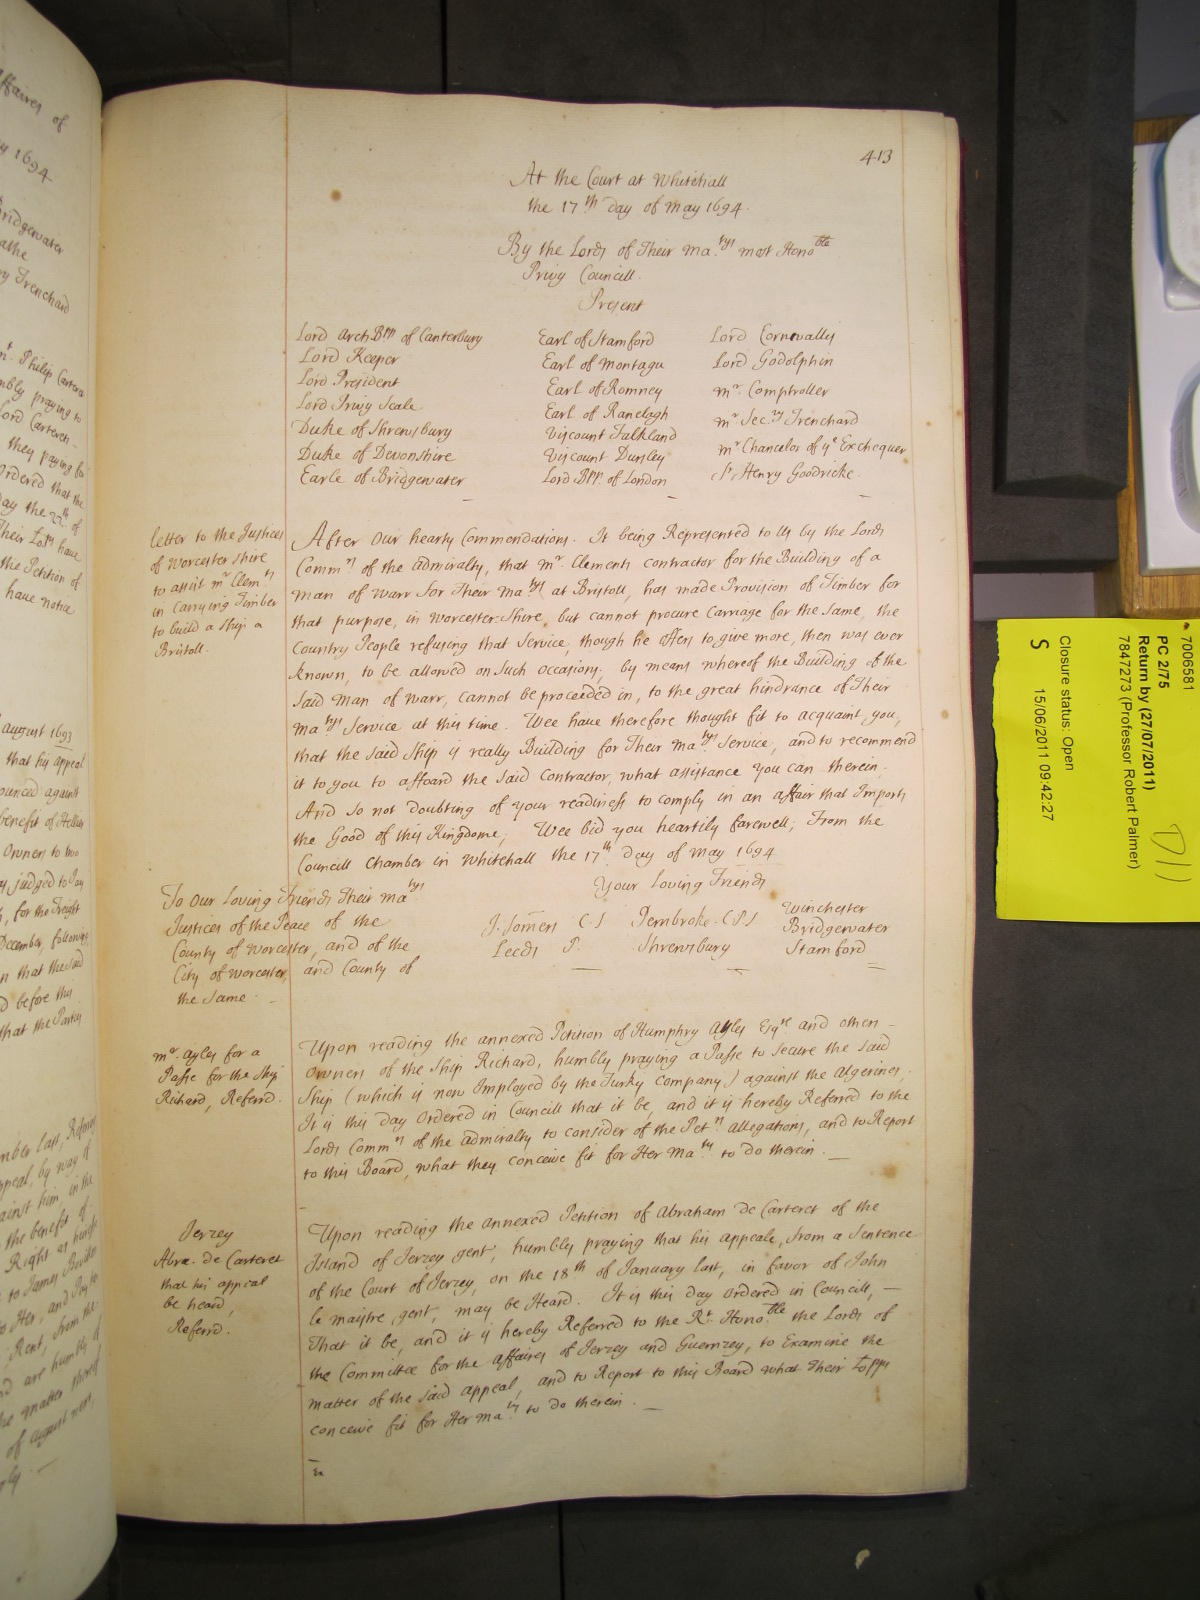 413
At the Court at Whitehall
the 17th day of May 1694.
By the Lords of Their Matys most Honoble
Privy Councill.
Present
Lord ArchBpp of Canterbury
Lord Keeper
Lord President
Lord Privy Seale
Duke of Shrewsbury
Duke of Devonshire
Earle of Bridgewater
Earl of Stamford
Earl of Montagu
Earl of Romney
Earl of Ranelagh
Viscount Falkland
Viscount Dursley
Lord Bpp. of London
Lord Cornwallis
Lord Godolphin
Mr. Comptroller
Mr Secry Trenchard
Mr Chancelor of ye Exchequer
Sr. Henry Goodricke
letter to the Justices
of Worcester shire
to assist Mr Clemts
in Carrying Timber
to build a ship a
Bristoll.
After Our hearty Commendations. It being Represented to Us by the Lords
Commrs of the Admiralty, that Mr. Clements contractor for the Building of a
Man of Warr for Their Matys at Bristoll, has made Provision of Timber for
that purpose, in Worcester-shire, but cannot procure Carriage for the Same, the
Country People refusing that Service, though he offers to give more, then was ever
known, to be allowed on Such occasions, by means whereof the Building of the
Said Man of Warr, cannot be proceeded in, to the great hindrance of Their
Matys Service at this time. Wee have therefore thought fit to acquaint you,
that the said Ship is really Building for Their Matys Service, and to recommend
it to you to affoard the said Contractor, what assistance you can therein.
And so not doubting of your readiness to comply in an affair that Imports
the Good of this Kingdome; Wee bid you heartily farewell; From the
Councill Chamber in Whitehall the 17th day of May 1694
Your Loving Friends
To Our Loving Friends Their Matys
Justices of the Peace of the
County of Worcester, and of the
City of Worcester, and County of
the Same.
J. Somers C.S Pembroke C.P.S Winchester
Leeds P. Shrewsbury Bridgewater
Stamford
Mr. Ayles for a
Passe for the Ship
Richard, Referrd.
Upon reading the annexed Petition of Humphry Ayles Esqre and others
Owners of the Ship Richard, humbly praying a Passe to Secure the said
Ship (which is now Imployed by the Turky Company) against the Algerines,
It is this day Ordered in Councill that it be, and it is hereby Referred to the
Lords Commrs of the Admiralty to consider of the Petrs allegations, and to Report
to this Board, what they conceive fit for Her Maty to do therein.
Jerzey
Abra. de Carteret
that his appeal
be heard,
Referrd.
Upon reading the annexed Petition of Abraham de Carteret of the
Island of Jerzey gent, humbly praying that his appeale, from a Sentence
of the Court of Jerzey, on the 18th of January last, in favor of John
le Maistre, gent, may be Heard. It is this day Ordered in Councill,
That it be, and it is hereby Referred to the Rt. Honoble the Lords of
the Committee for the affaires of Jerzey and Guernzey, to Examine the
matter of the said appeal, and to Report to this Board what Their Lopps
conceive fit for Her Maty to do therein.
7006581
PC 2/75
Return by (27/07/2011)
7847273 (Professor Robert Palmer)
Closure status: Open
S 15/06/2011 09:42:27
D11
ffaires of
1694
Bridgewater
Trenchard
Philip Cartera
mbly praying to
Lord Carteret
they paying for
Ordered that the
day the 22th of
Their Lopps have
the Petition of
have notice
August 1693
that his appeal
against
benefit of Hellier
Owners to two
judged to Pay
for the Freight
December, following
n that the said
before this
that the Parties
mber last, Referring
ppeal, by way of
ainst him, in the
the benefit of
to Her, and Pay to
Rent, from the
nd are humbly of
he matter
of August next,